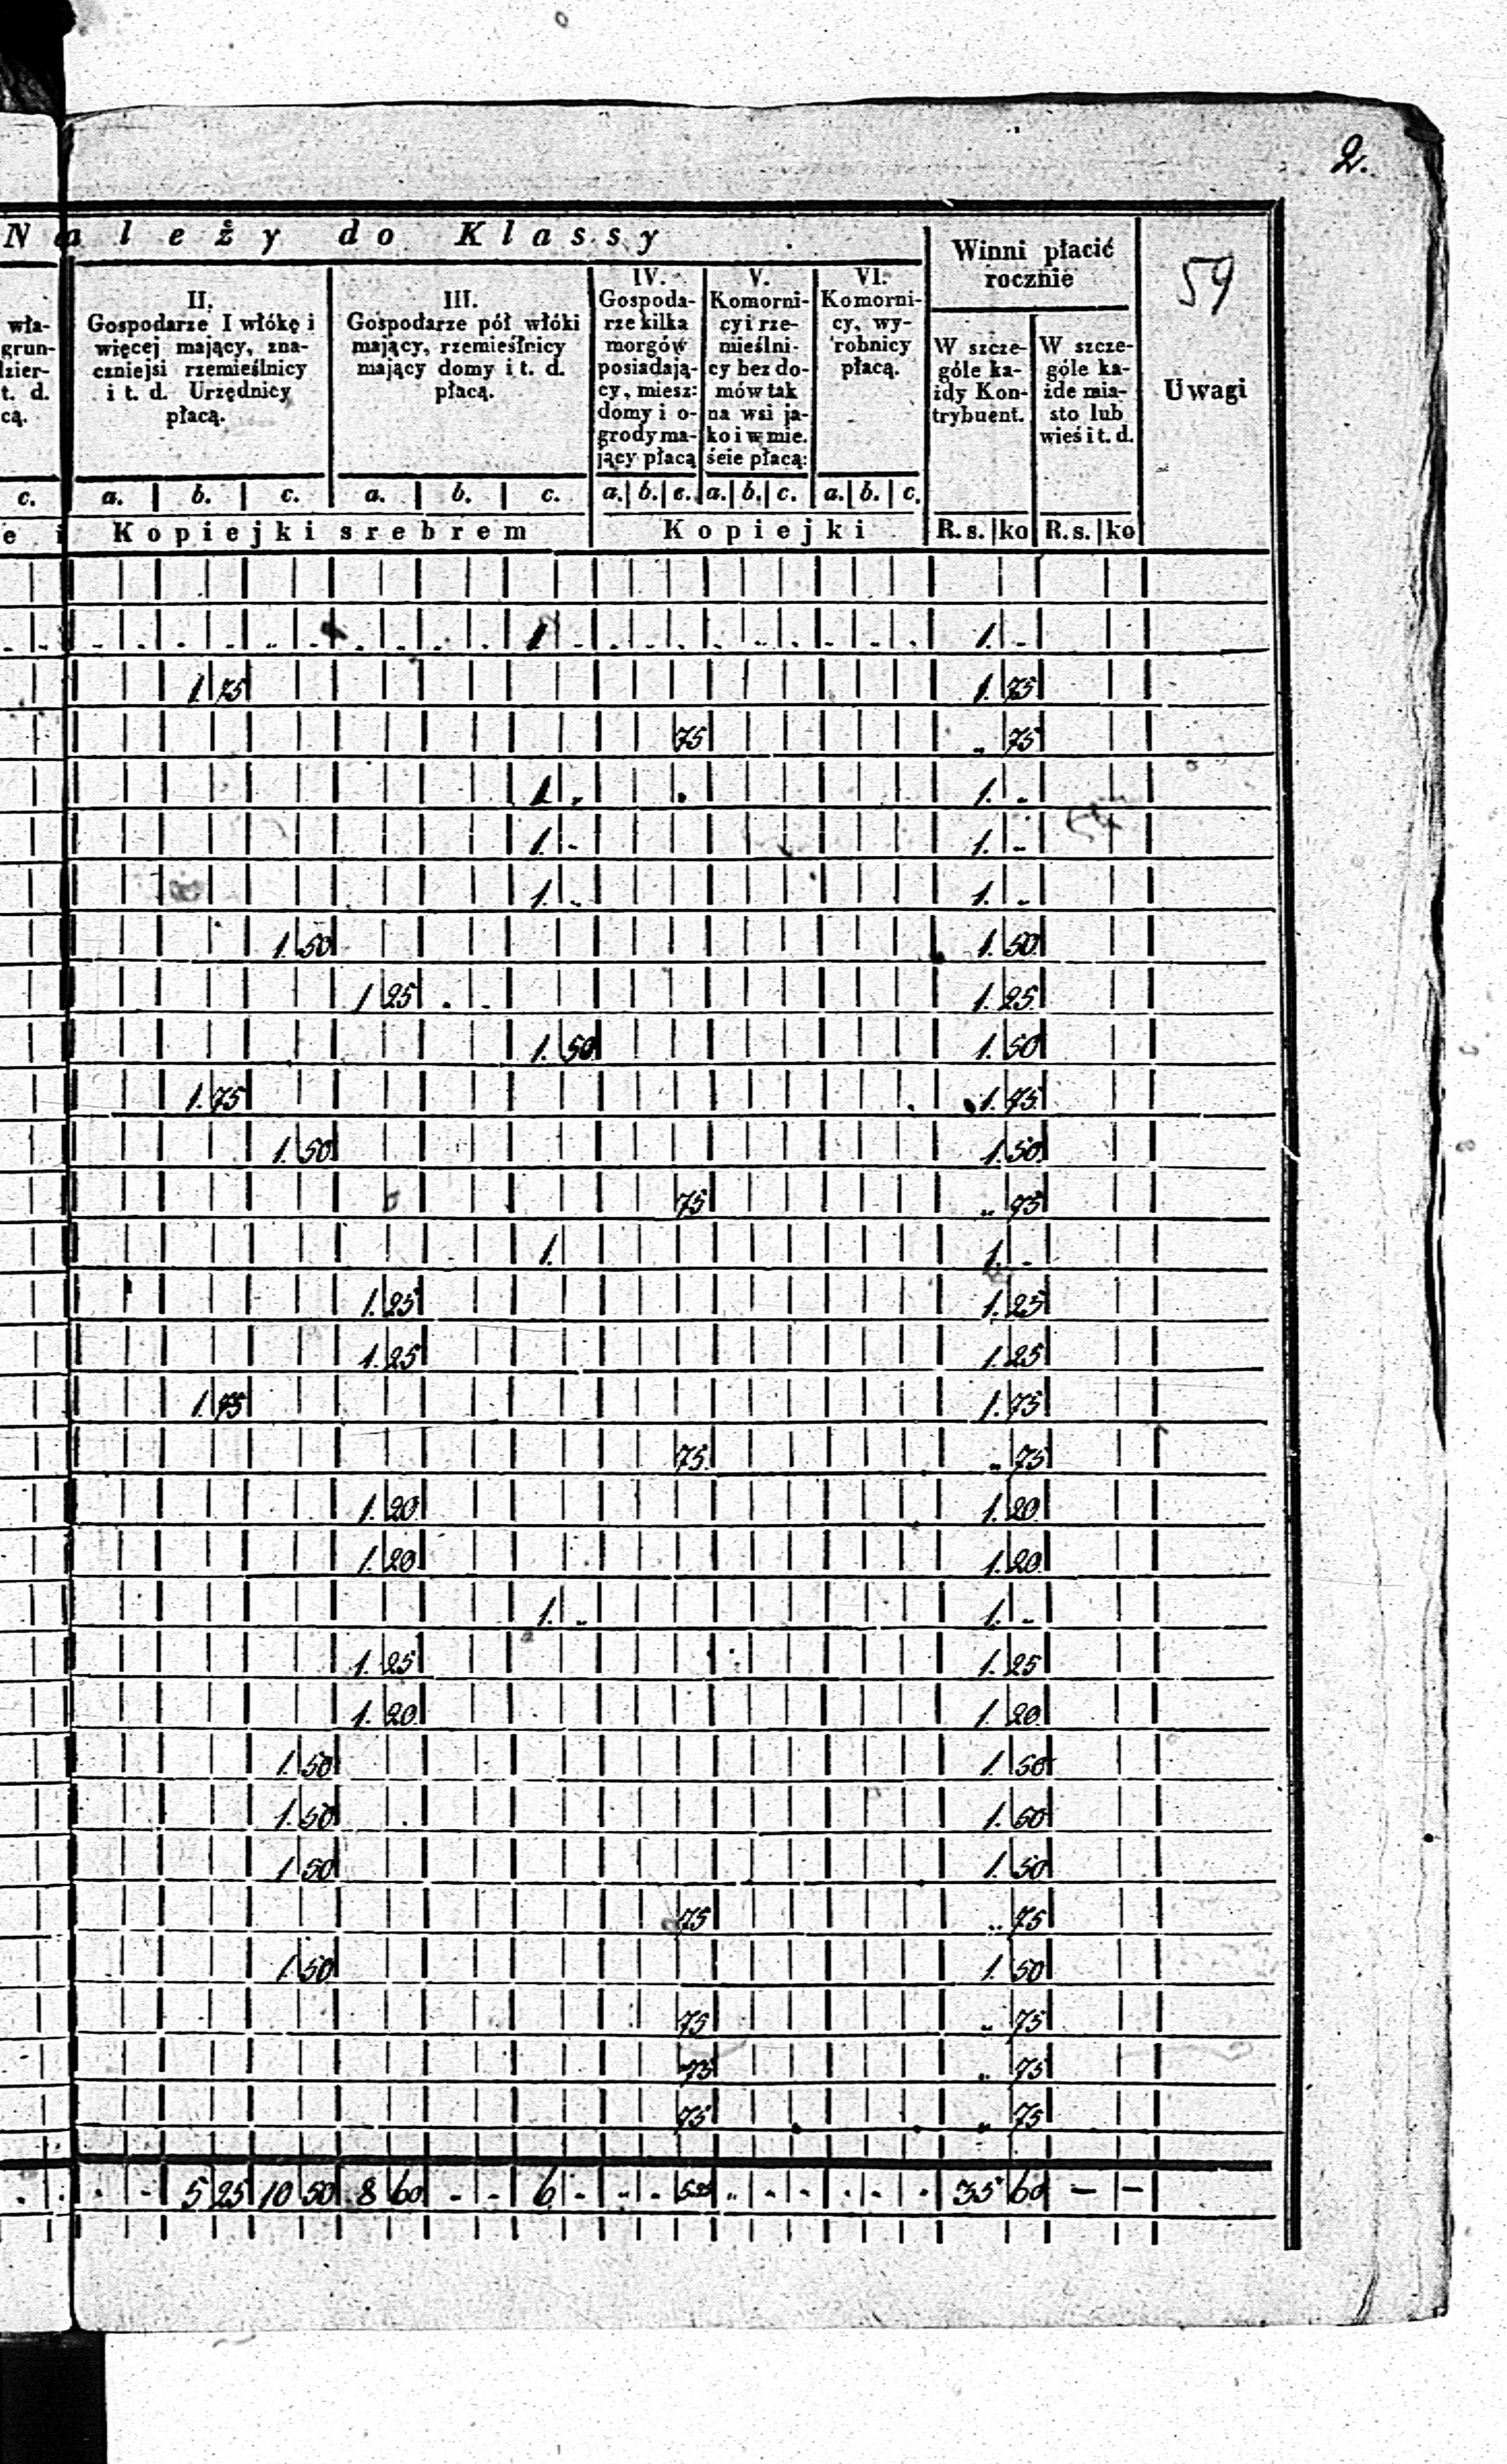 2.
Należy do Klassy
Winni płacić
rocznie
59
wła-
grun-
dzier-
t. d.
cą.
II.
Gospodarze I włókę i
więcej mający, zna-
czniejsi rzemieślnicy
i t. d. Urzędnicy
płacą.
III.
Gospodarze pół włóki
mający, rzemieślnicy
mający domy i t. d.
płacą.
IV.
Gospoda-
rze kilka
morgów
posiadają-
cy, miesz:
domy i o-
grody ma-
jący płacą
V.
Komorni-
cy i rze-
mieślni-
cy bez do-
mów tak
na wsi ja-
ko i w mie.
ście płacą:
VI.
Komorni-
cy, wy-
robnicy
płacą.
W szcze-
góle ka-
żdy Kon-
trybuent.
W szcze-
góle ka-
żde mia-
sto lub
wieś i t. d.
Uwagi
c. a. b. c. a. b. c. a. b. c. a. b. c. a. b. c.
e i Kopiejki srebrem Kopiejki R. s. ko R. s. ko
1 - 1. -
1 75 1. 75
75 .. 75
1 - 1. -
1. - 1. -
1. - 1. -
1. 50 1. 50
1 25 . - 1. 25
1. 50 1. 50
1. 75 1. 75
1. 50 1. 50
75 .. 75
1. 1. -
1. 25 1. 25
1. 25 1. 25
1. 75 1. 75
75. .. 75
1. 20 1. 20
1. 20 1. 20
1. - 1. -
1. 25 1. 25
1. 20 1. 20
1. 50 1. 50
1. 50 1. 50
1. 50 1. 50
75 .. 75
1. 50 1. 50
75 .. 75
75 .. 75
75 .. 75
5 25 10 50 8 60 - - 6. - 5 25 35 60 - -